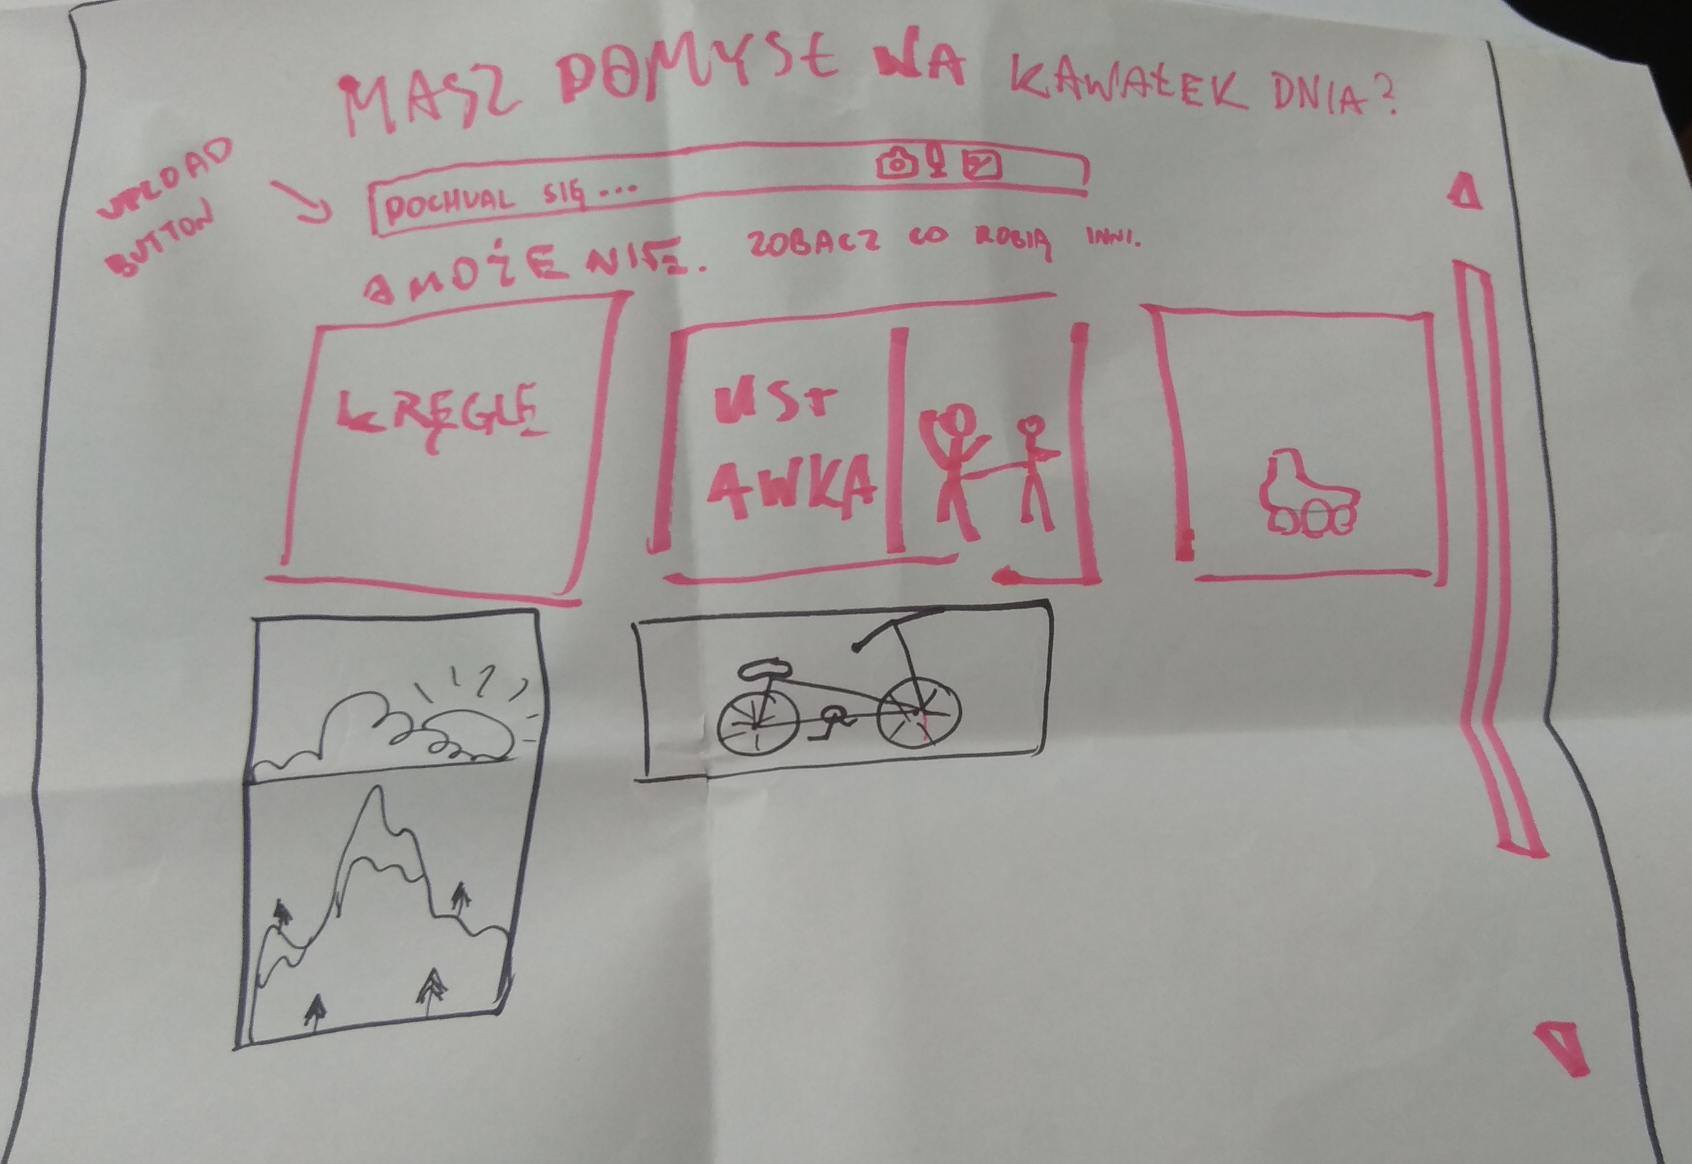 MASZ POMYSŁ NA KAWAŁEK DNIA?
UPLOAD
BUTTON
POCHWAL SIĘ...
A MOŻE NIE. ZOBACZ CO ROBIĄ INNI.
KRĘGLE
UST
AWKA